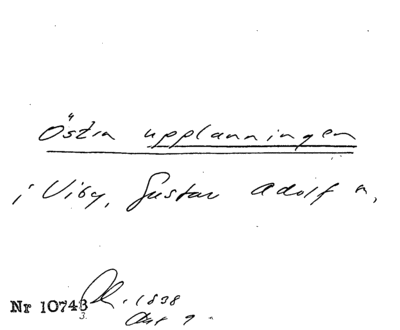 Östra upplanningen
i Viby, Gustav Adolf n,
Nr 10743
1838